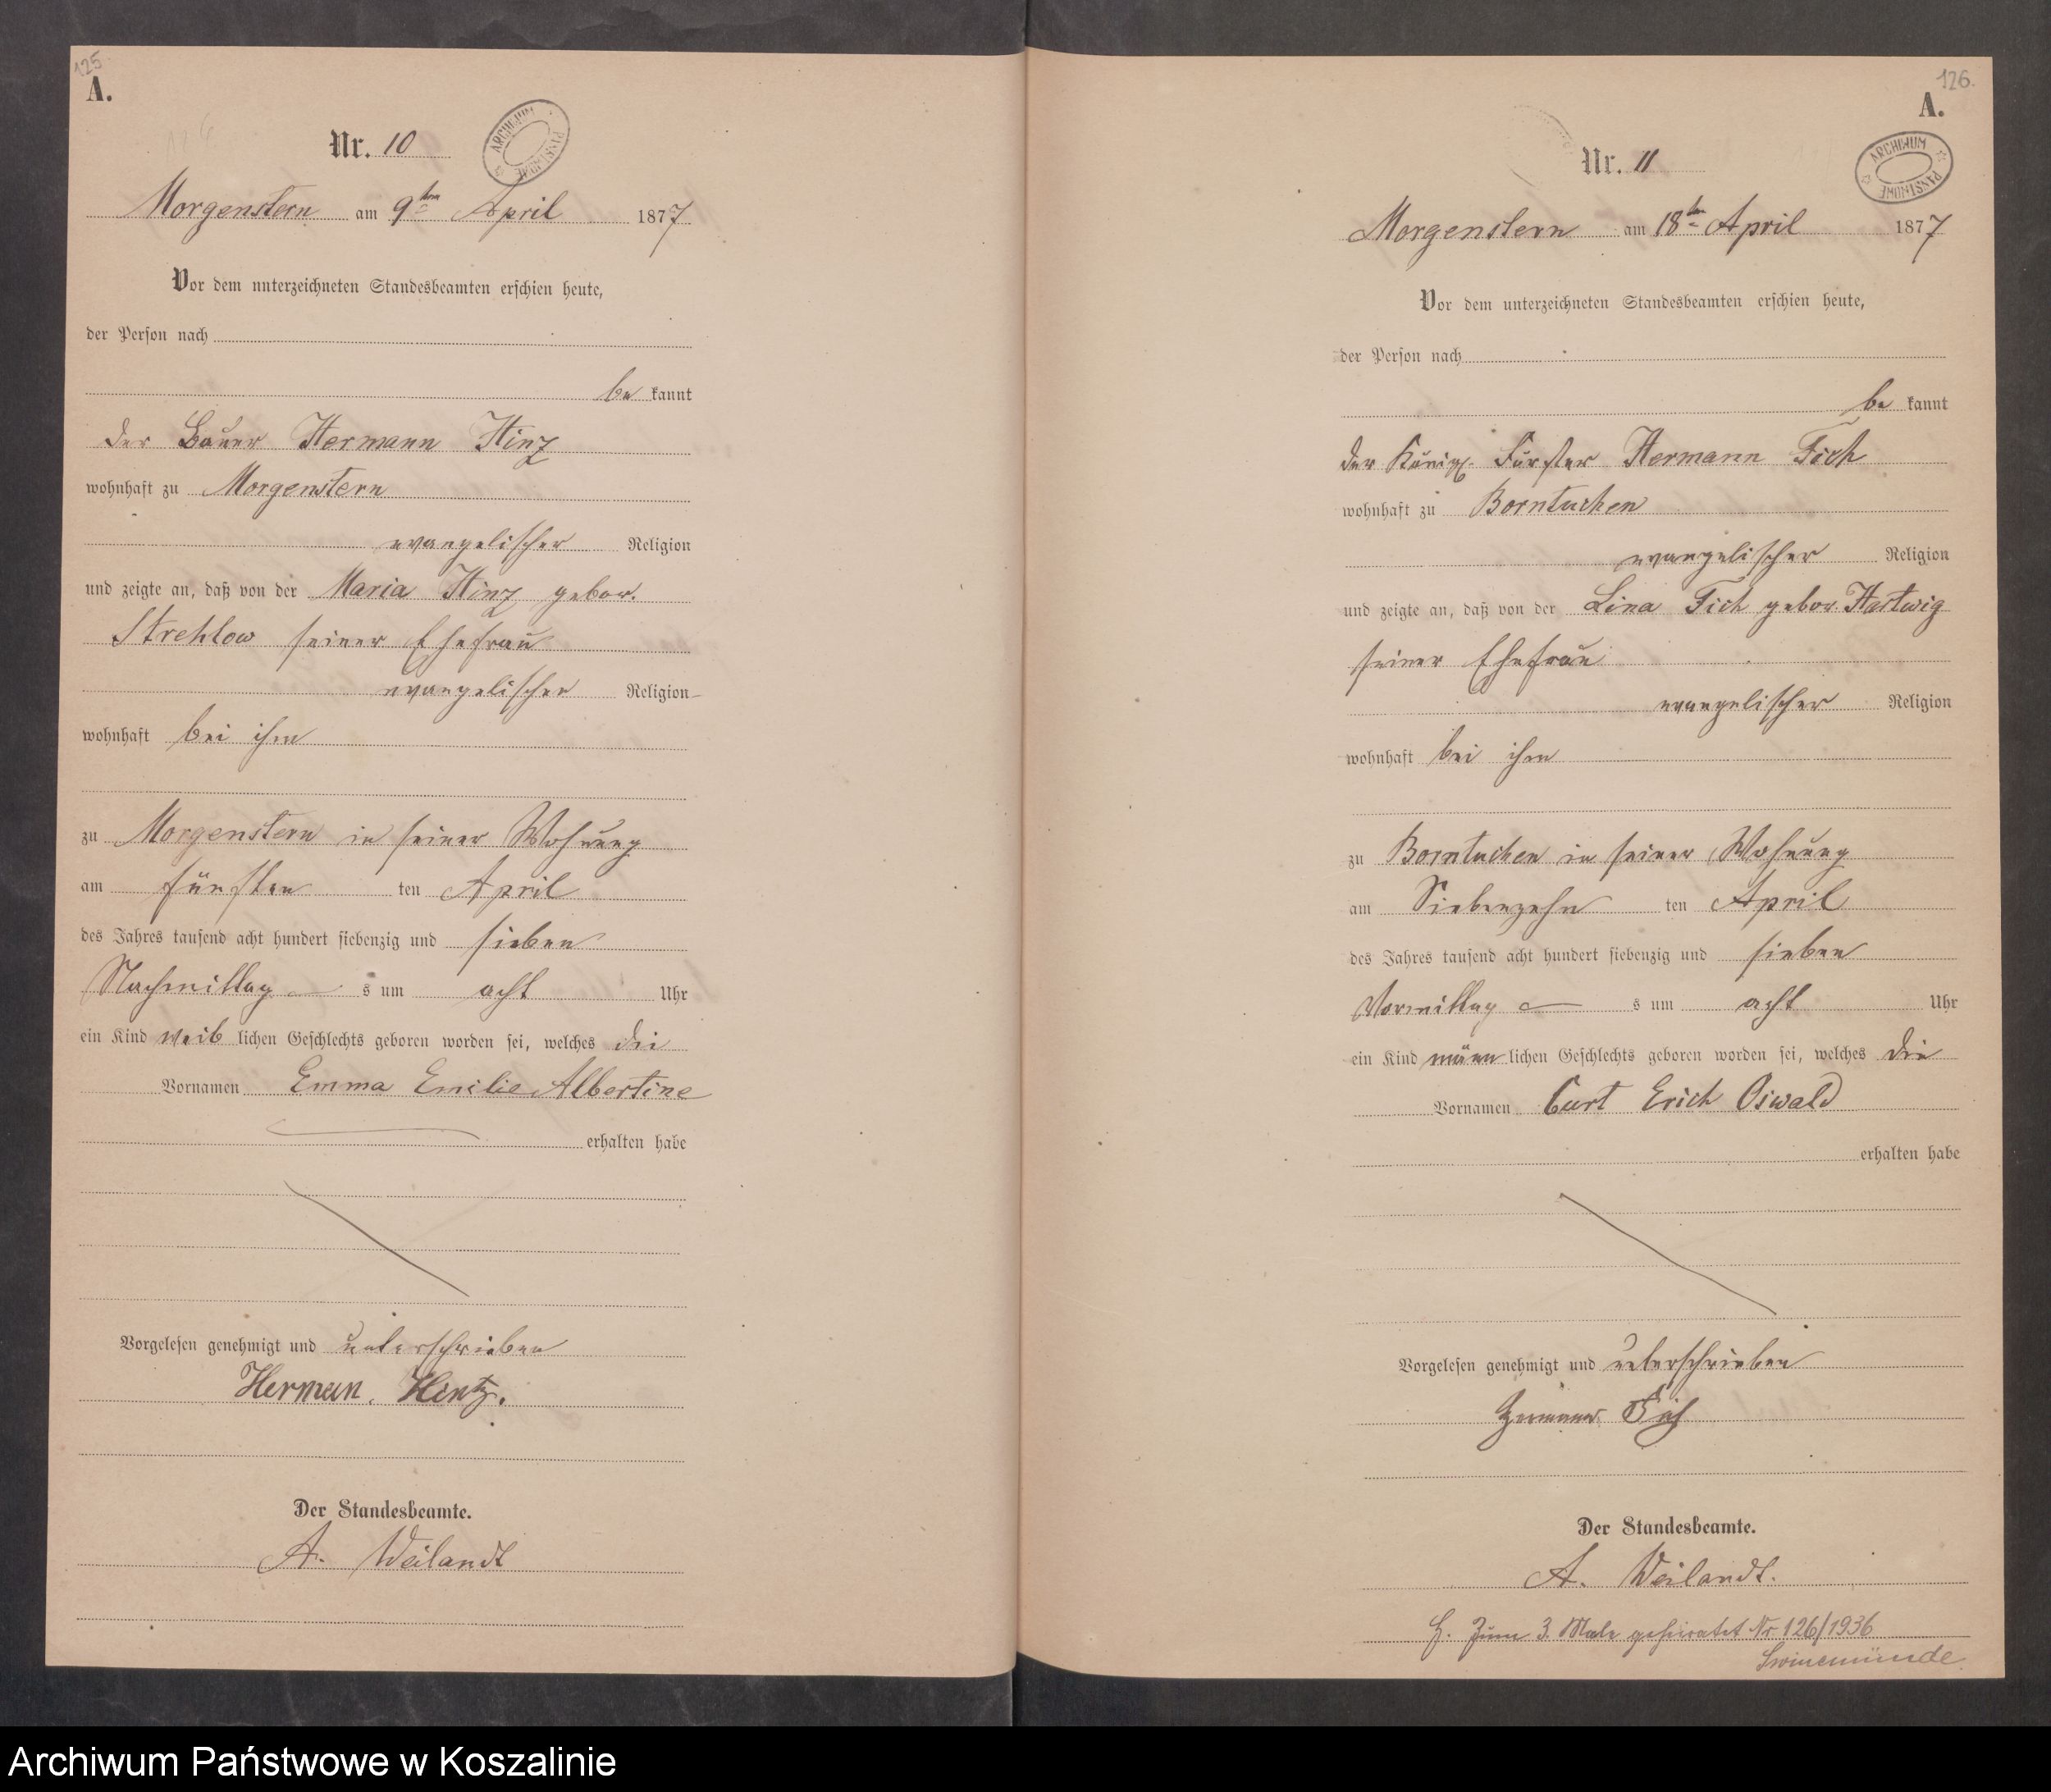 125
A.
Nr. 10
ARCHIWUM PAŃSTWOWE
Morgenstern am 9ten April 1877
Vor dem unterzeichneten Standesbeamten erschien heute,
der Person nach
be kannt
der Bauer Hermann Hinz
wohnhaft zu Morgenstern
evangelischer Religion
und zeigte an, daß von der Maria Hinz gebor.
Strehlow seiner Ehefrau
evangelischer Religion
wohnhaft bei ihm
zu Morgenstern in seiner Wohnung
am fünften ten April
des Jahres tausend acht hundert siebenzig und sieben
Nachmittag s um acht Uhr
ein Kind weib lichen Geschlechts geboren worden sei, welches die
Vornamen Emma Emilie Albertine
erhalten habe
Vorgelesen genehmigt und unterschrieben
Herman. Hintz.
Der Standesbeamte.
A. Weilandt
126.
A.
Nr. 11
ARCHIWUM PAŃSTWOWE
Morgenstern am 18ten April 1877
Vor dem unterzeichneten Standesbeamten erschien heute,
der Person nach
be kannt
der Königl. Förster Hermann Fich
wohnhaft zu Borntuchen
evangelischer Religion
und zeigte an, daß von der Lina Fich gebor. Hartwig
seiner Ehefrau
evangelischer Religion
wohnhaft bei ihm
zu Borntuchen in seiner Wohnung
am Siebenzehn ten April
des Jahres tausend acht hundert siebenzig und sieben
Vormittag s um acht Uhr
ein Kind männ lichen Geschlechts geboren worden sei, welches die
Vornamen Curt Erich Oswald
erhalten habe
Vorgelesen genehmigt und unterschrieben
Hermann Fich
Der Standesbeamte.
A. Weilandt.
H. Zum 3. Male geheiratet Nr. 126/1936
Swinemünde.
Archiwum Państwowe w Koszalinie